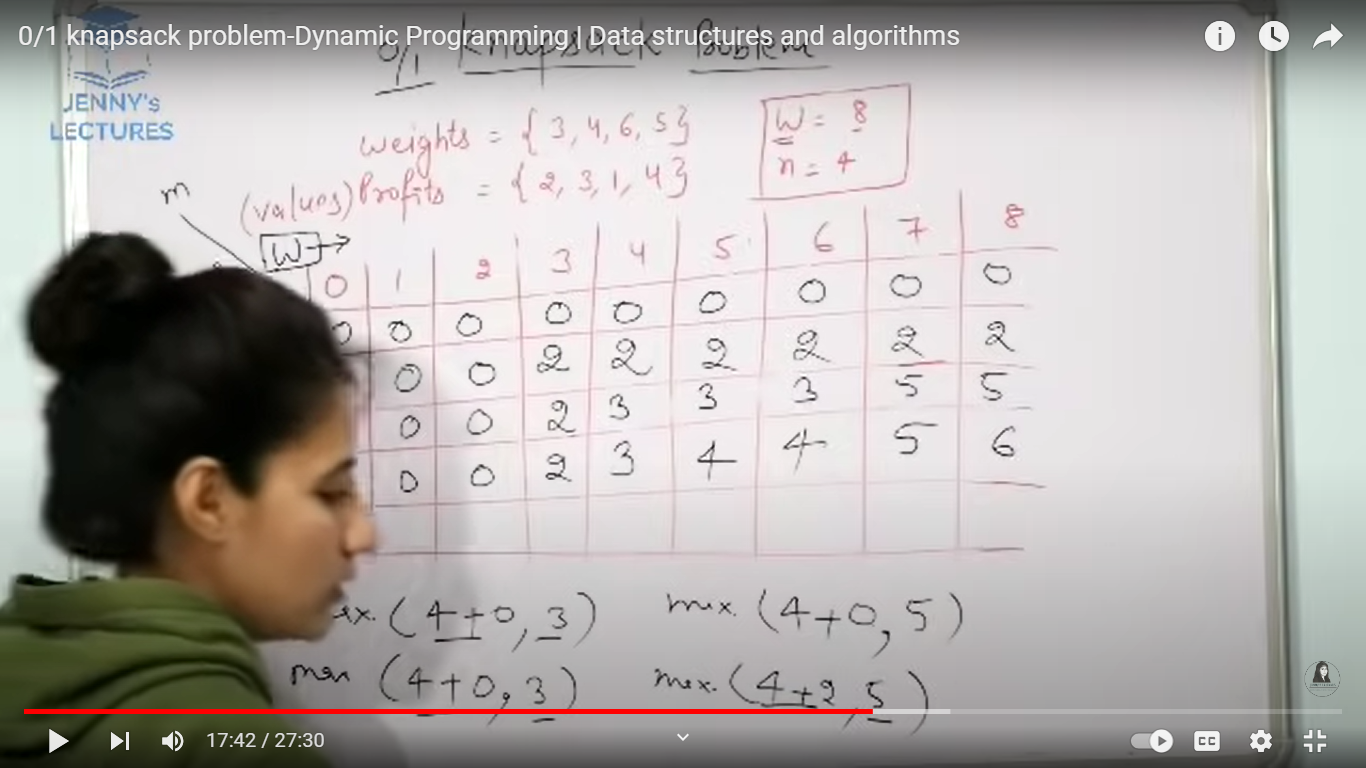 0/1 knapsack problem-Dynamic Programming | Data structures and algorithms
0/1 Knapsack Problem
JENNY's
LECTURES
weights = { 3, 4, 6, 5 }
W = 8
(values) Profits = { 2, 3, 1, 4 }
n = 4
m
W →
0 1 2 3 4 5 6 7 8
0 0 0 0 0 0 0 0 0
0 0 2 2 2 2 2 2
0 0 2 3 3 3 5 5
0 0 2 3 4 4 5 6
max. ( 4+0, 3 ) max. ( 4+0, 5 )
max ( 4+0, 3 ) max. ( 4+2, 5 )
17:42 / 27:30
CC